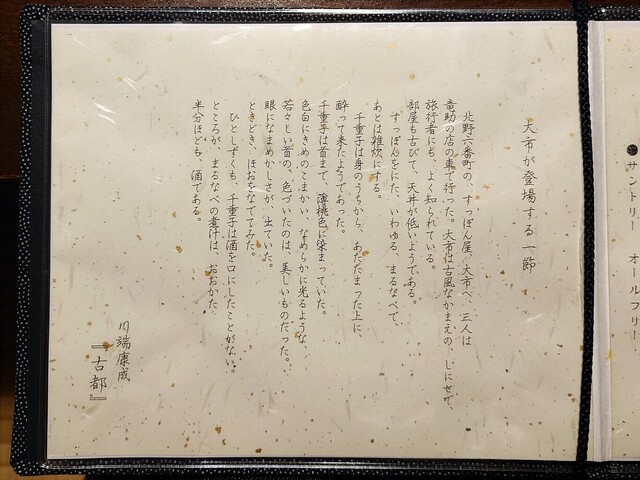 サントリー　オールフリー
大市が登場する一節
北野六番町の、すっぽん屋、大市へ、三人は
竜助の店の車で行った。大市は古風なかまえの、しにせで、
旅行者にも、よく知られている。
部屋も古びて、天井が低いようである。
すっぽんをにた、いわゆる、まるなべで、
あとは雑炊にする。
千重子は身のうちから、あたたまった上に、
酔って来たようであった。
千重子は首まで、薄桃色に染まっていた。
色白にきめのこまかい、なめらかに光るような、
若々しい首の、色づいたのは、美しいものだった。
眼になまめかしさが、出ていた。
ときどき、ほおをなでてみた。
ひとしずくも、千重子は酒を口にしたことがない。
ところが、まるなべの煮汁は、おおかた
半分ほども、酒である。
川端康成
『古都』